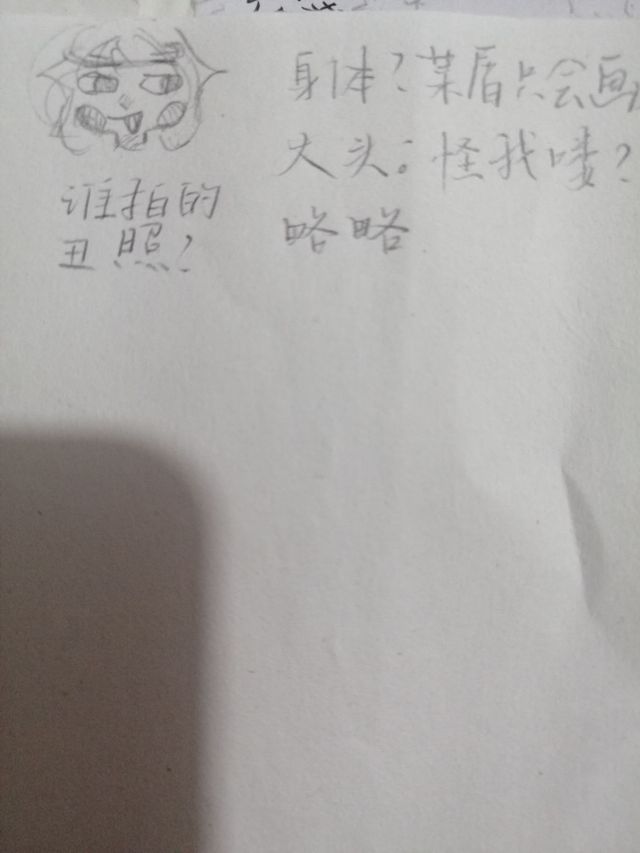 身体?某盾只会画
大头:怪我喽?
略略
谁拍的
丑照?